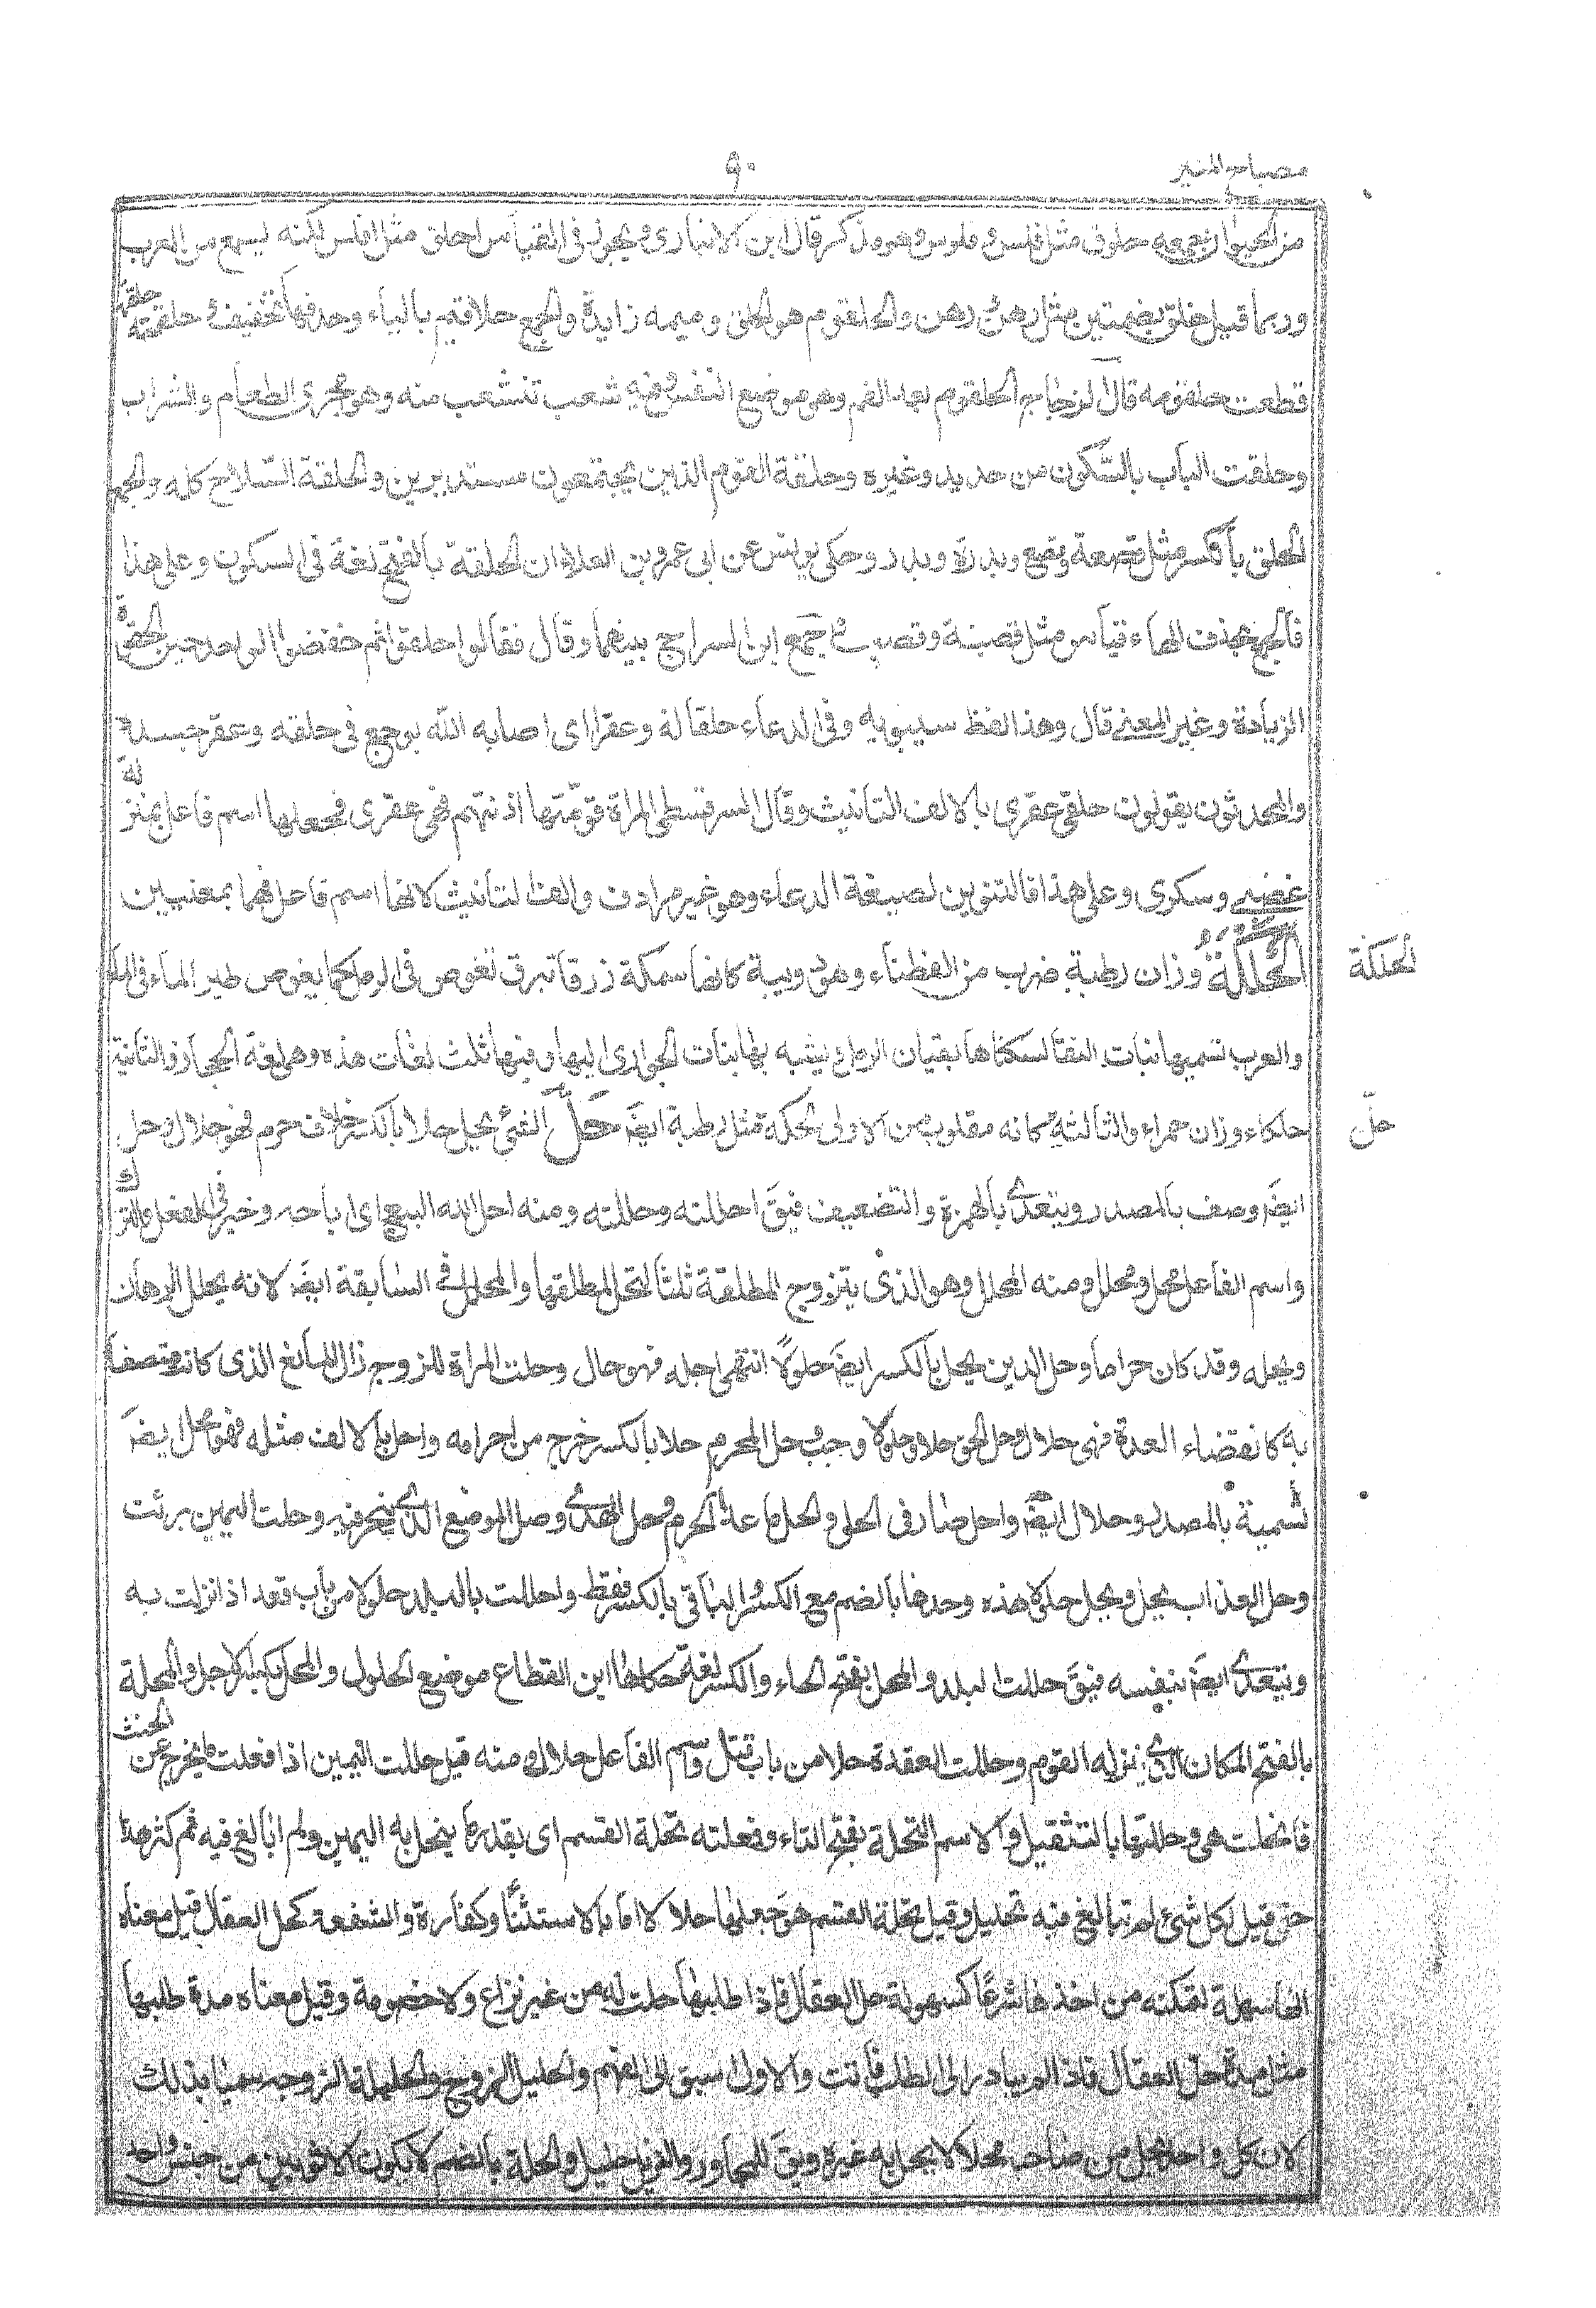 مصباح المنير
٩٠
من الحيوان جمعه حلوق مثل فلس وفلوس وهو مذكر قال ابن الانباري ويجوز في القياس احلق مثل افلس لكنه لم يسمع من العرب
وربما قيل حلق بضمتين مثل رهن ورهن والحلقوم هو الحلق وميمه زايدة والجمع حلاقيم بالياء وحذفها تخفيف وحلقمته حلقمة
قطعت حلقومه قال الزجاج الحلقوم بعد الفم وهو موضع النفس وفيه شعب تتشعب منه وهو مجرى الطعام والشراب
وحلقت الباب بالسكون من حديد وغيره وحلقة القوم الذين يجتمعون مستديرين والحلقة السلاح كله والجمع
الحلق بالكسر مثل قصعة وقصع وبدرة وبدر وحكى يونس عن ابي عمرو بن العلاء ان الحلقة بالفتح لغة في السكون وعلى هذا
فالجمع بحذف الهاء قياس مثل قصبة وقصب وجمع ابن السراج بينهما وقال فقالوا حلق ثم خففوا الواحد حين الحقوه
الزيادة وغير المعنى قال وهذا لفظ سيبويه وفي الدعاء حلقا له وعقرا اى اصابه الله بوجع في حلقه وعقر جسده
والمحدثون يقولون حلقى عقرى بالالف التانيث وقال السرقسطى المراة قومتها اذ نتهم فهي عقرى فجعلها اسم فاعل بمنزلة
غضبى وسكرى وعلى هذا فالتنوين لصيغة الدعاء وهو غير مرادف والف التانيث لانها اسم فاعل فهما بمعنيين
الحلكة وزان رطبة ضرب من العظاء وهى دويبة كانها سمكة زرقا تبرق تغوص في الرمل كما يغوص طير الماء في الماء
والعرب تسميها بنات النقا لسكناها بقيان الرمل ويشبه بها بنات الجوارى لينها وفيها ثلث لغات هذه وهي لغة الحجاز والثانية
حلكاء وزان حمراء والثالثة كانه مقلوب من الاولى لحكة مثل رطبة ايضَ حلّ الشئ يحل حلا بالكسر خلاف حرم فهو حلال وحل
ايضَ وصف بالمصدر ويتعدى بالهمزة والتضعيف فيقَ احللته وحللته ومنه احل الله البيع اى اباحه وخير في الفعل والترك
واسم الفاعل محل ومحلل ومنه المحلل وهو الذى يتزوج المطلقة ثلثا لتحل لمطلقها والمحلل في السابقة ايضَ لانه يحلل الرهان
ويحله وقد كان حراما وحل الدين يحل بالكسر ايضَ حلولاً انتهى اجله فهو حال وحلت المراة للزوج زال المانع الذى كانت متصفة
به كانقضاء العدة فهى حلال وحل الحق حلا وحلولا وجب وحل المحرم حلا بالكسر خرج من احرامه واحل بالالف مثله فهو محل ايضَ
تسمية بالمصدر وحلال ايضَ واحل صار في الحل والحل ما عدا الحرم وحل الهدى وصل الموضع الذى ينحر فيه وحلت اليمين برئت
وحل العذاب يحل ويحل حلولا هذه وحدها بالضم مع الكسر والباقي بالكسر فقط واحللت بالبلد حلولا من باب قعد اذا نزلت به
ويتعدى ايضَ بنفسه فيقَ حللت البلد والمحل بفتح الحاء والكسر لغة حكاها ابن القطاع موضع الحلول والمحل بكسر الاجل والمحلة
بالفتح المكان الذى ينزله القوم وحللت العقدة حلا من باب قتل واسم الفاعل حلال ومنه قيل حللت اليمين اذا فعلت ما يخرج عن الحنث
فانحلت هى وحللتها بالتثقيل والاسم التحلة بفتح التاء وفعلته تحلة القسم اى بقدر ما ينحل به اليمين ولم ابالغ فيه ثم كثر هذا
حتى قيل لكل شئ لم تبالغ فيه تحليل وقيل تحلة القسم هو جعلها حلا لا اما بالاستثنا او كفارة والشفعة كحل العقال قيل معناه
انها سهلة لتمكنه من اخذها شرعًا كسهولة حل العقال فاذا طلبها حلت له من غير نزاع ولا خصومة وقيل معناه مدة طلبها
مثل مدة حل العقال فاذا لم يبادر الى الطلب فاتت والاول اسبق الى الفهم والحليل الزوج والحليلة الزوجه سميا بذلك
لان كل واحد يحل من صاحبه محلا لا يحل به غيره ويقَ للمجاور والنزيل حليل والحلة بالضم لا يكون الا ثوبين من جنس واحد
الحلكة
حلّ